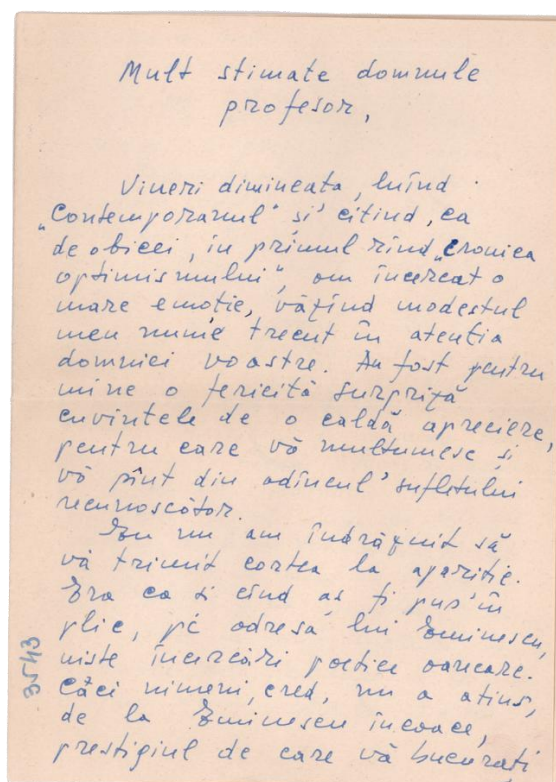 Mult stimate domnule
profesor,
Vineri dimineata, luînd
„Contemporanul" și citind, ca
de obicei, în primul rînd „Cronica
optimismului", am încercat o
mare emoție, văzînd modestul
meu nume trecut în atenția
domniei voastre. Au fost pentru
mine o fericită surpriză
cuvintele de o caldă apreciere,
pentru care vă multumesc și
vă sînt din adîncul sufletului
recunoscător.
Eu nu am îndrăznit să
vă trimit cartea la apariție.
Era ca si cînd aș fi pus în
plic, pe adresa lui Eminescu,
niste încercări poetice oarecare.
Căci nimeni, cred, nu a atins,
de la Eminescu încoace,
prestigiul de care vă bucurati
3543